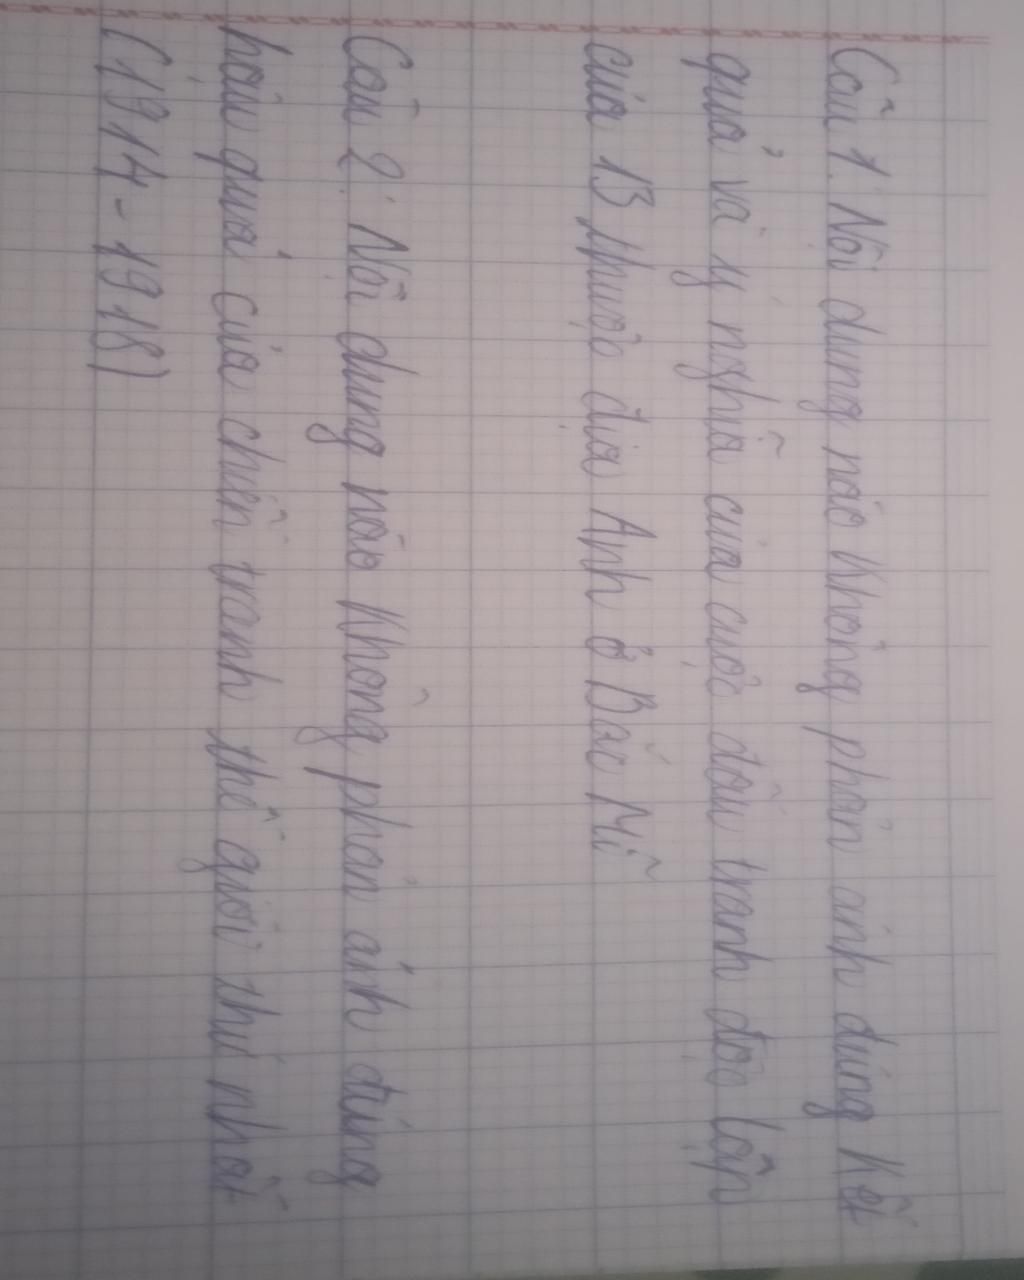 Câu 1: Nội dung nào không phản ánh đúng kết
quả và ý nghĩa của cuộc đấu tranh độc lập
của 13 thuộc địa Anh ở Bắc Mĩ
Câu 2: Nội dung nào không phản ánh đúng
hậu quả của chiến tranh thế giới thứ nhất
(1914-1918)